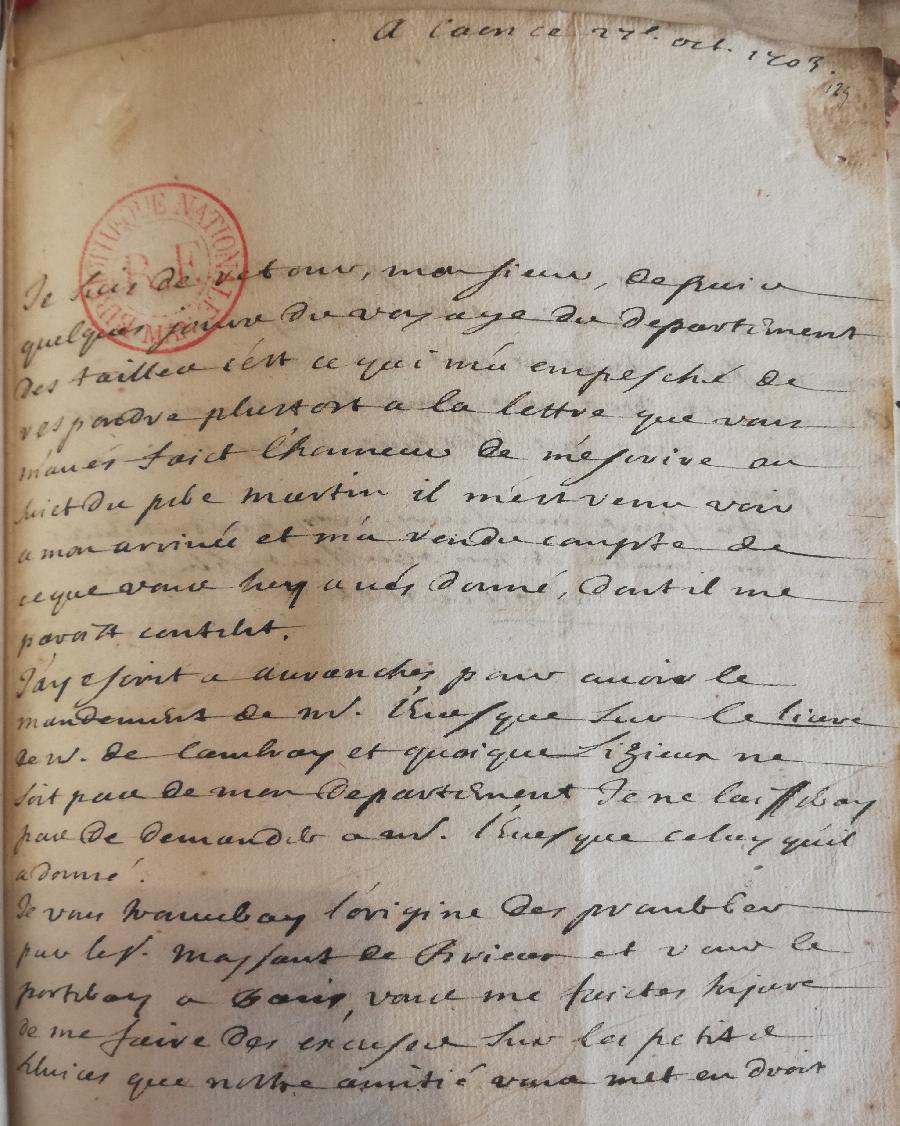 A Caen ce 27e. oct. 1703.
129
BIBLIOTHEQUE NATIONALE
R.F.
Je suis de retour, monsieur, depuis
quelques jours du voyage du departement
des tailles c'est ce qui m'a empesché de
respondre plustost a la lettre que vous
m'aués faict l'honneur de m'escrire au
suiet du pere martin il m'est venu voir
a mon arriuée et m'a rendu compte de
ce que vous luy aués donné, dont il me
paroist content.
J'ay escrit a auranches pour auoir le
mandement de mr. l'Euesque sur le liure
de mr. de Cambray et quoique Lizieux ne
soit pas de mon departement Je ne laisseray
pas de demander a mr. l'Euesque celuy qu'il
a donné.
Je vous l'origine des
par le sr. de et vous le
porteray a Paris, vous me faictes Injure
de me faire des excuses sur les petits
seruices que nostre amitié vous met en droit